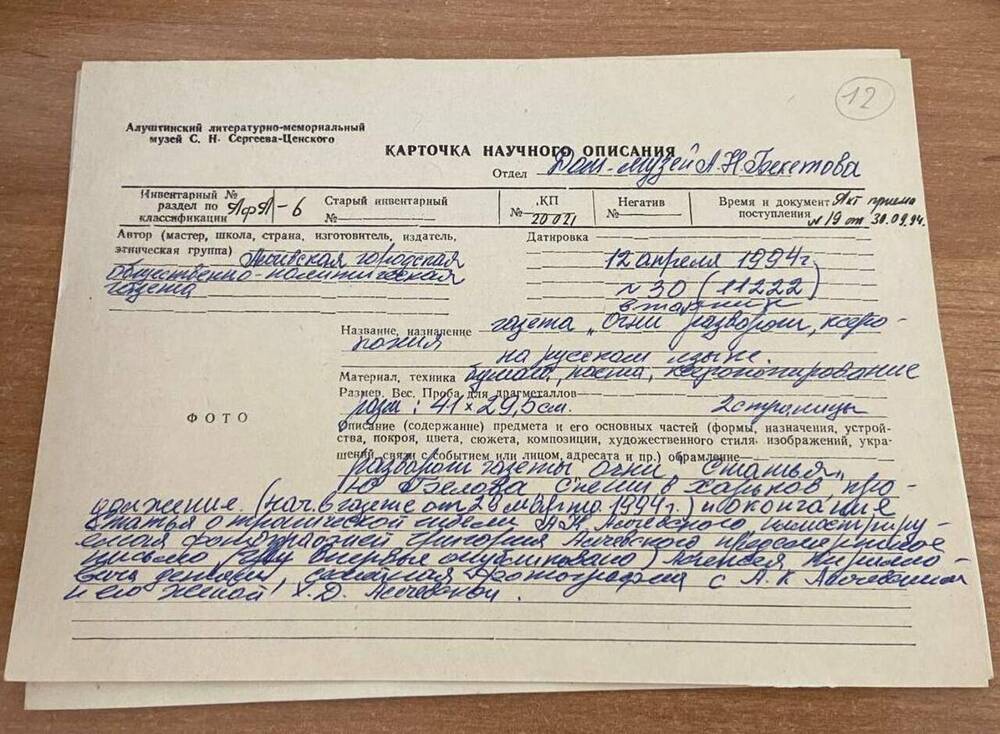 12
Алуштинский литературно-мемориальный
музей С. Н. Сергеева-Ценского
КАРТОЧКА НАУЧНОГО ОПИСАНИЯ
Отдел Дом-музей А Н Бекетова
Инвентарный №
раздел по
классификации АфА-6
Старый инвентарный
№
КП
№ 20021
Негатив
№
Время и документ
поступления Акт приема
№ 19 от 30.09.94.
Автор (мастер, школа, страна, изготовитель, издатель,
этническая группа) городская
общественно-политическая
газета
Датировка
12 апреля 1994г.
№ 30 (11222)
вторник
Название, назначение газета „Огни разворот, ксеро-
копия
на русском языке.
Материал, техника бумага, паста, ксерокопирование
Размер. Вес. Проба для драгметаллов
разм: 41×29,5см. 2 страницы
ФОТО
Описание (содержание) предмета и его основных частей (формы, назначения, устрой-
ства, покроя, цвета, сюжета, композиции, художественного стиля изображений, укра-
шений, связи с событием или лицом, адресата и пр.) обрамление
разворот газеты огни, статья
Ю Белова Спеши в Харьков, про-
должение. (нач. в газете от 2 марта 1994г.) и окончание
статья о трагической гибели А.К. Алчевского, иллюстрируе-
мая фотографией Григория Алчевского предсмертное
письмо впервые опубликовано) Алексея Кирилло-
вича фотография с А. К Алчевским
и его женой Х.Д. Алчевской.